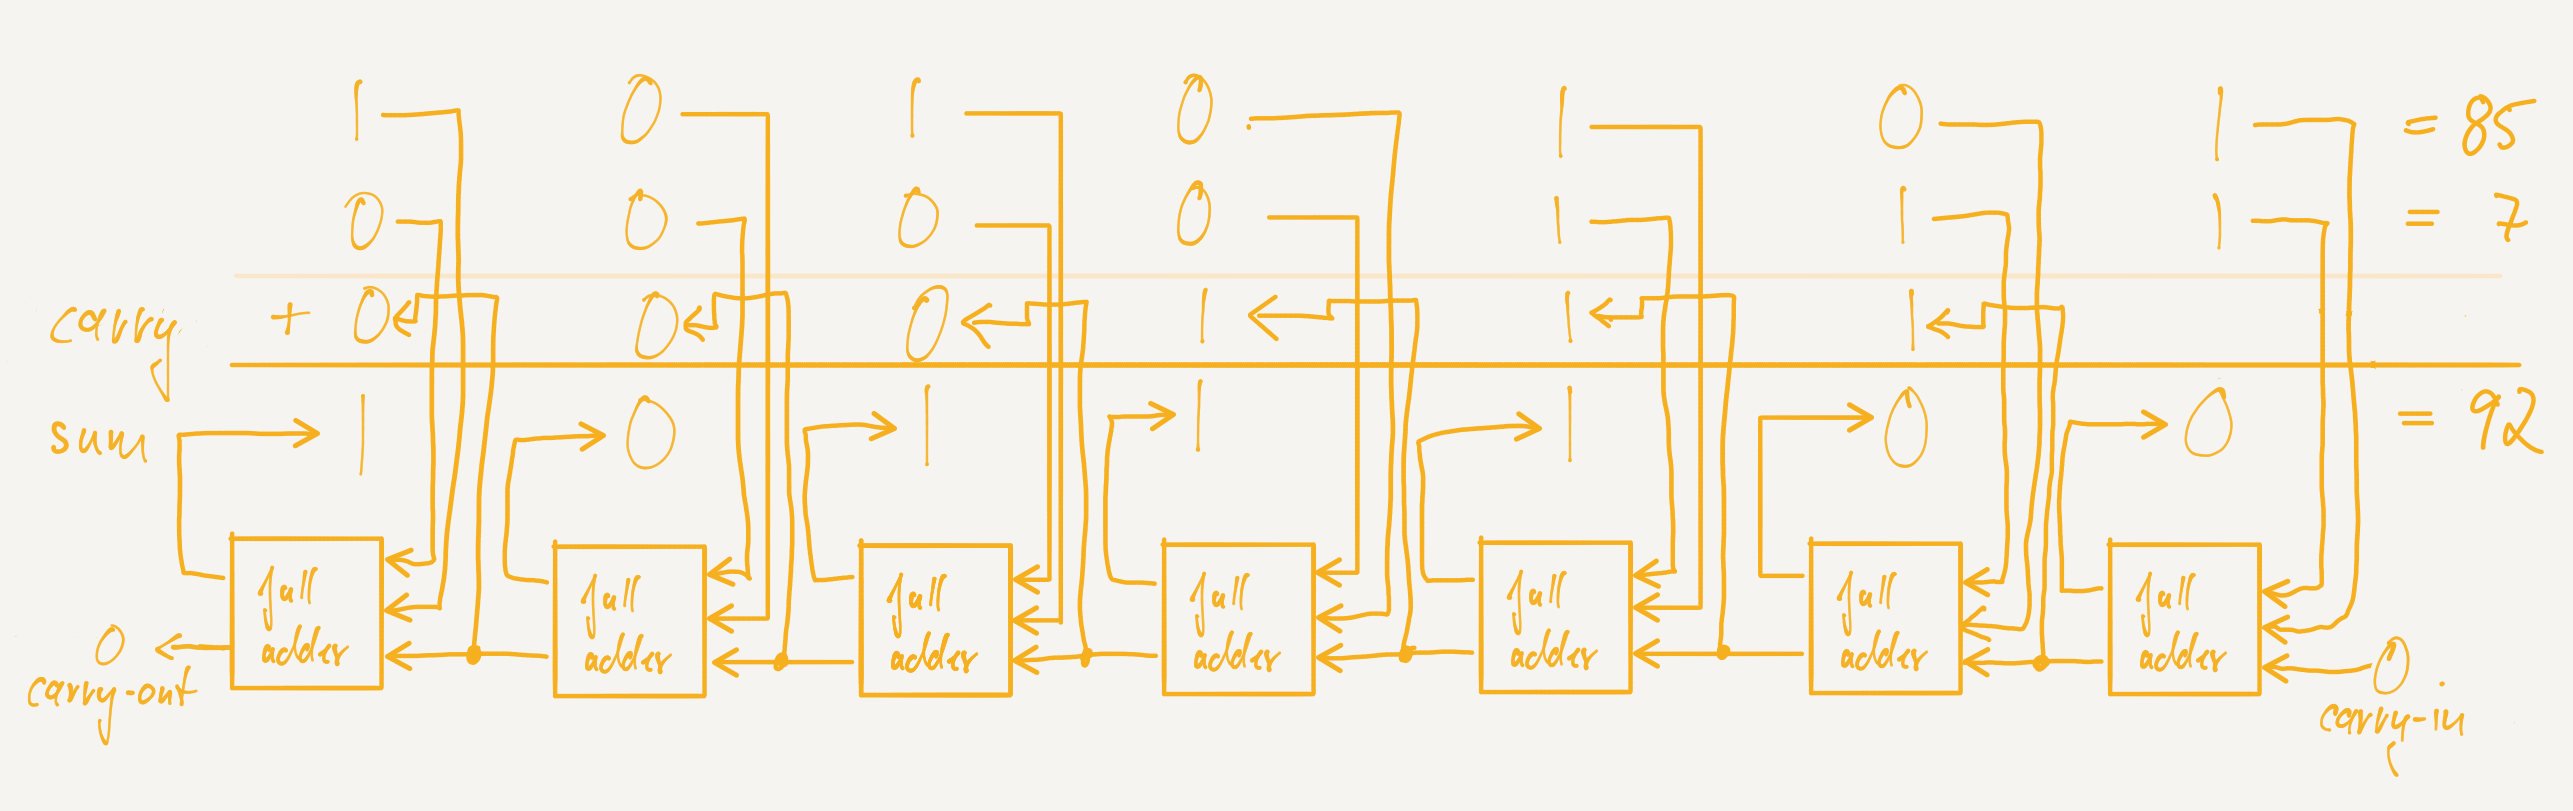 1 0 1 0 1 0 1 = 85
0 0 0 0 1 1 1 = 7
carry + 0 0 0 1 1 1
sum 1 0 1 1 1 0 0 = 92
full adder full adder full adder full adder full adder full adder full adder
0 0
carry-out carry-in